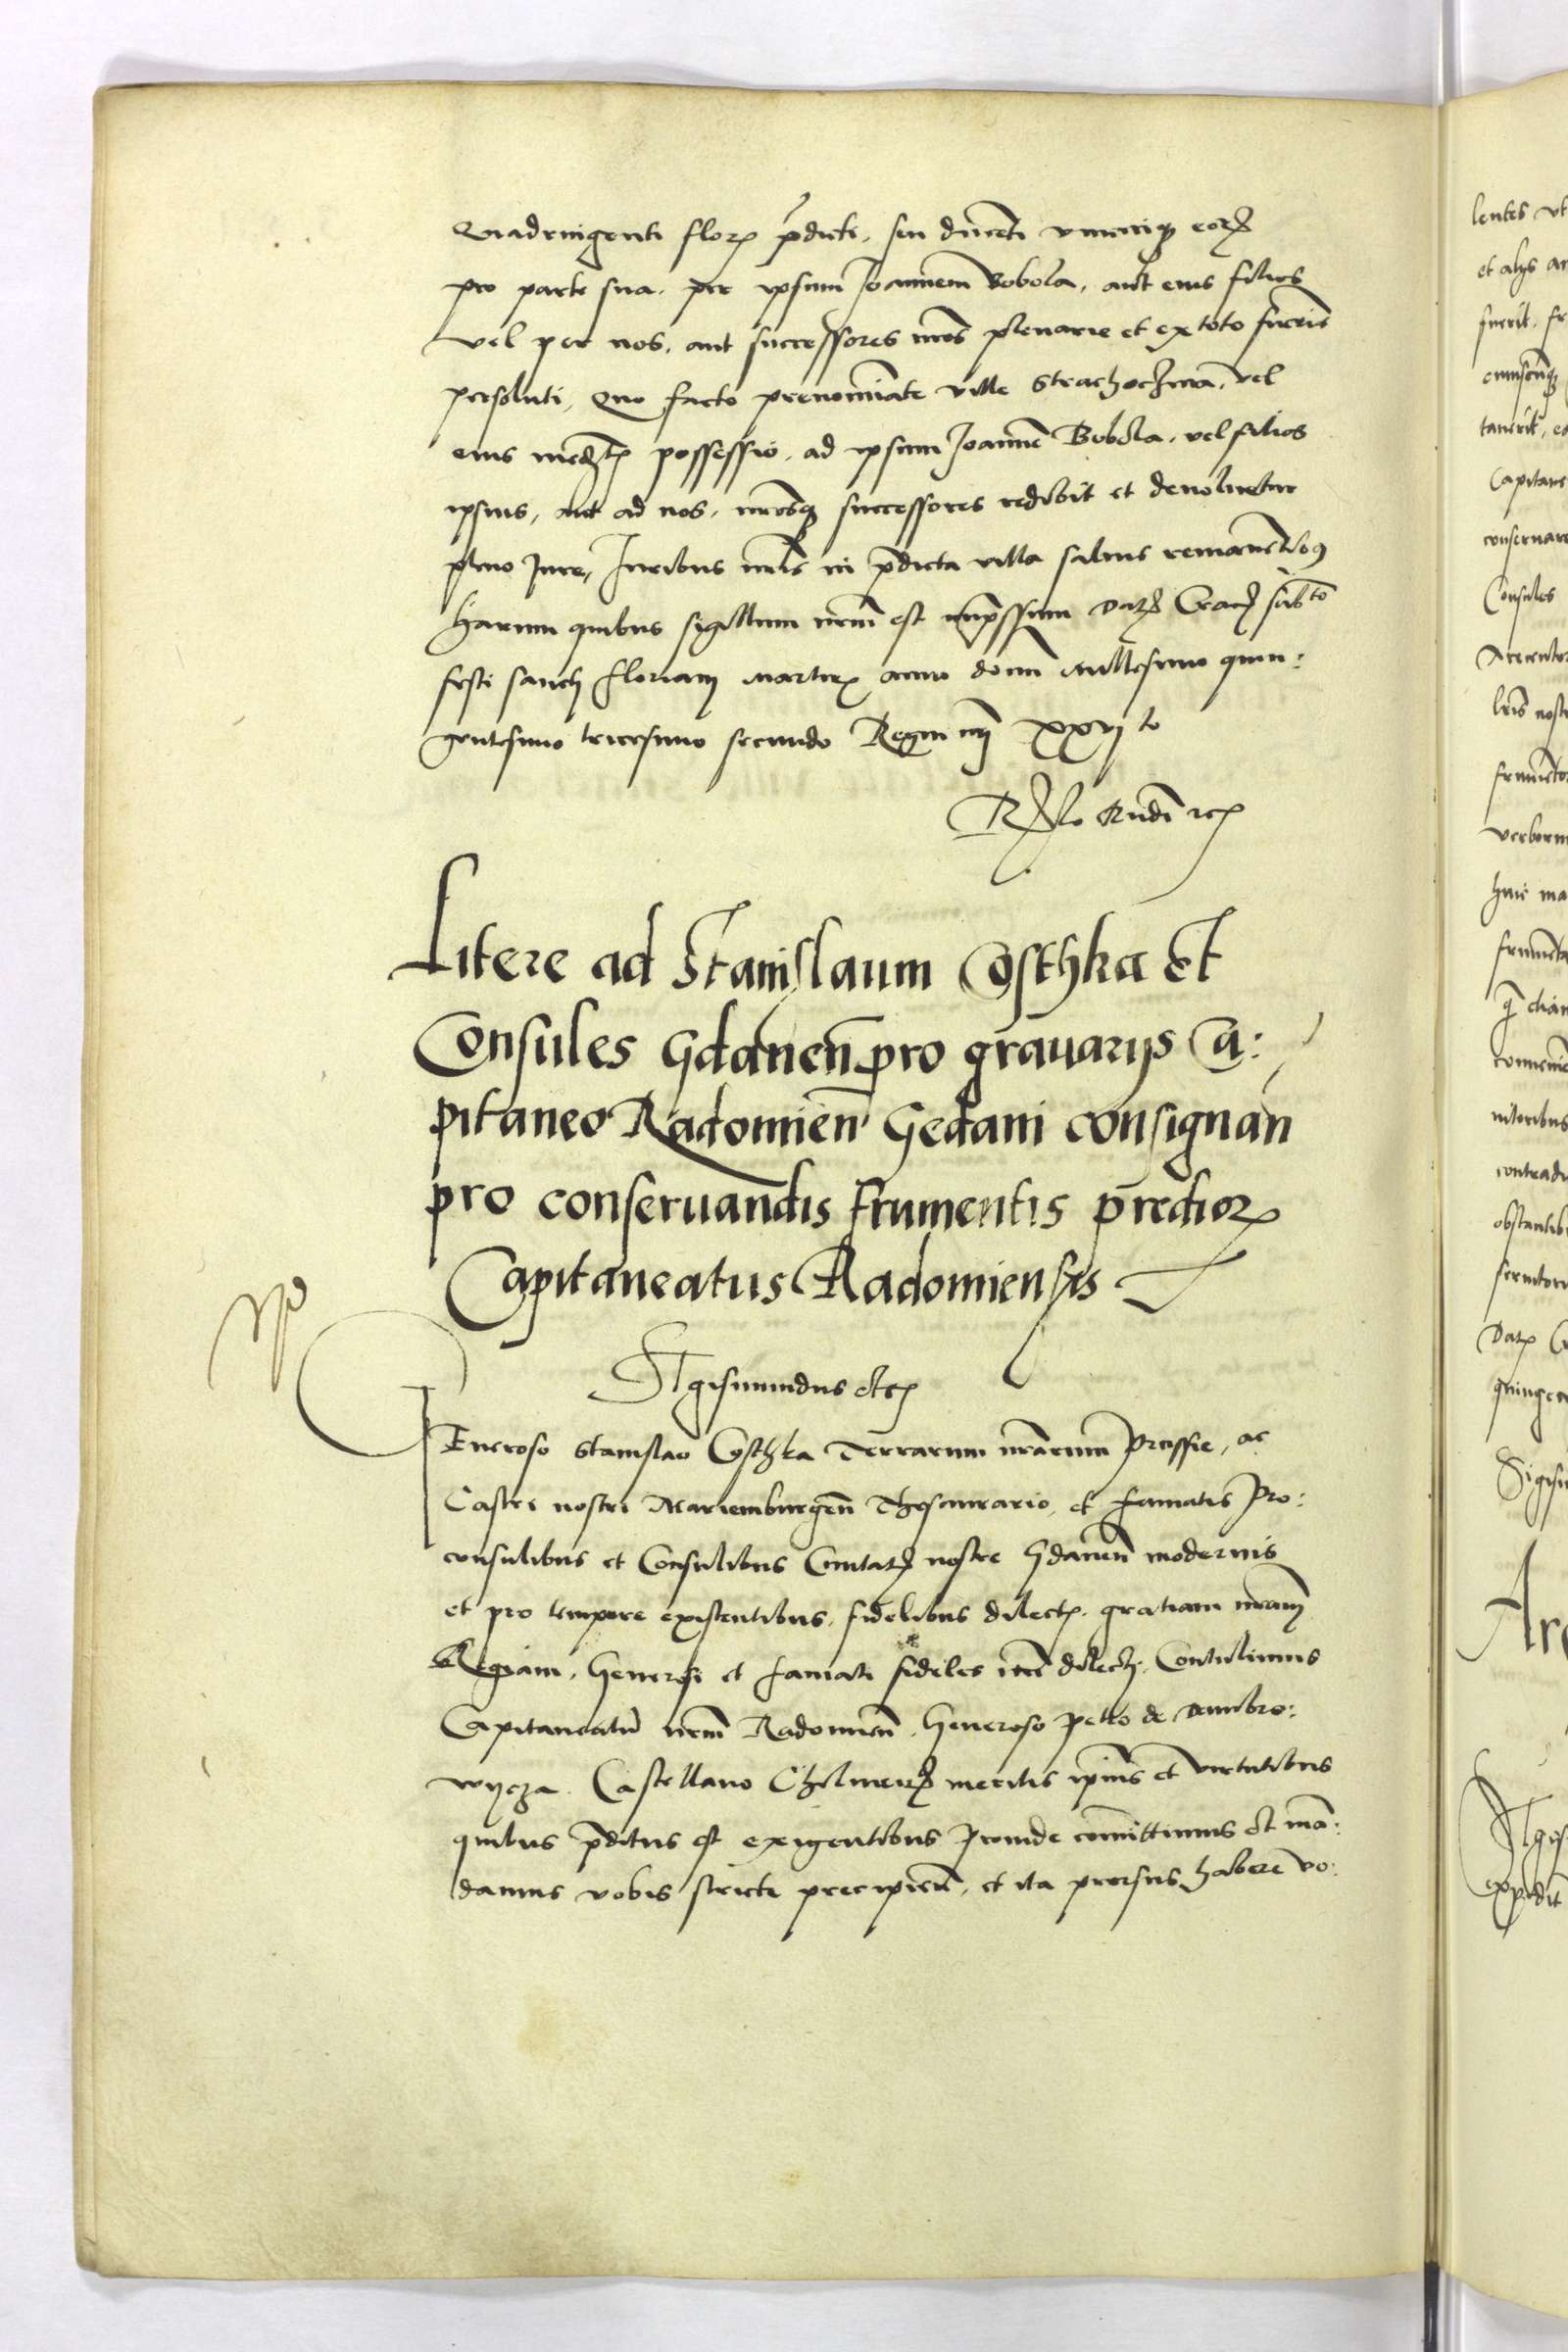 Quadringenti flor. p̄dicti, seu ducēti vnicuiq3 eor.
pro parte sua, per ipsum Joannem Bobola, aut eius filios
vel per nos, aut successores nr̄os plenarie et ex toto fuerīt
persoluti, Quo facto prenominate ville Strachoczina, vel
eius medt. possessio, ad ipsum Joannē Bobola, vel filios
ipsius, aut ad nos, nr̄osq3 successores redibit et deuoluetur
pleno Jure, Juribus nr̄is in p̄dicta villa saluis remanētibus
Harum quibus sigillum nr̄m est imp̄ssum Dat. Crac. sabto
festi sancti Floriani Martir. anno domī Millesimo quin:
gentesimo tricesimo secundo Regni nr̄i xxvi to
Litere ad Stanislaum Costhka et
Consules Gdanen̄ pro grauarijs Ca:
pitaneo Radomien̄ Gedani consignan̄
pro conseruandis frumentis prediorz
Capitaneatus Radomiensis
SIgismundus etc.
GEneroso Stanislao Costhka Terrarum nr̄arum Prussie, ac
Castri nostri Mariemburgen̄ Thesaurario, et Famatis Pro:
consulibus et Consulibus Ciuitat. nostre Gdanen̄ modernis
et pro tempore existentibus, fidelibus dilect. gratiam nr̄am
Regiam, Generosi et Famati fideles dilecti, Contulimus
Capitaneatū nr̄m Radomien̄, Generoso Petro de Dembro:
wycza Castellano Chelmen. meritis ip̄ius et virtutibus
quibus p̄ditus est exigentibus Proinde com̄ittimus et mā:
damus vobis stricte precipien̄, et ita prorsus habere vo:
lentes vt
et alijs
fuerit,
cuiuscūq3
Capitane
conseruare
Consules
nostr
frumēto
verborum
huic ma
frumēta
contradi
seruitori
Dat.
quinge
Sigis